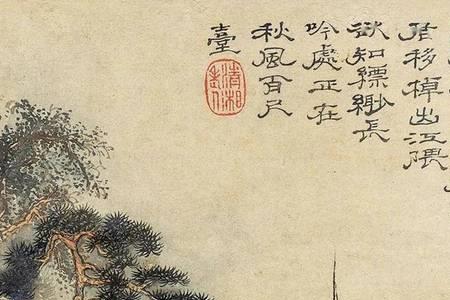 移棹出江隈
欲知縹緲長
吟處正在
秋風百尺
臺
清湘